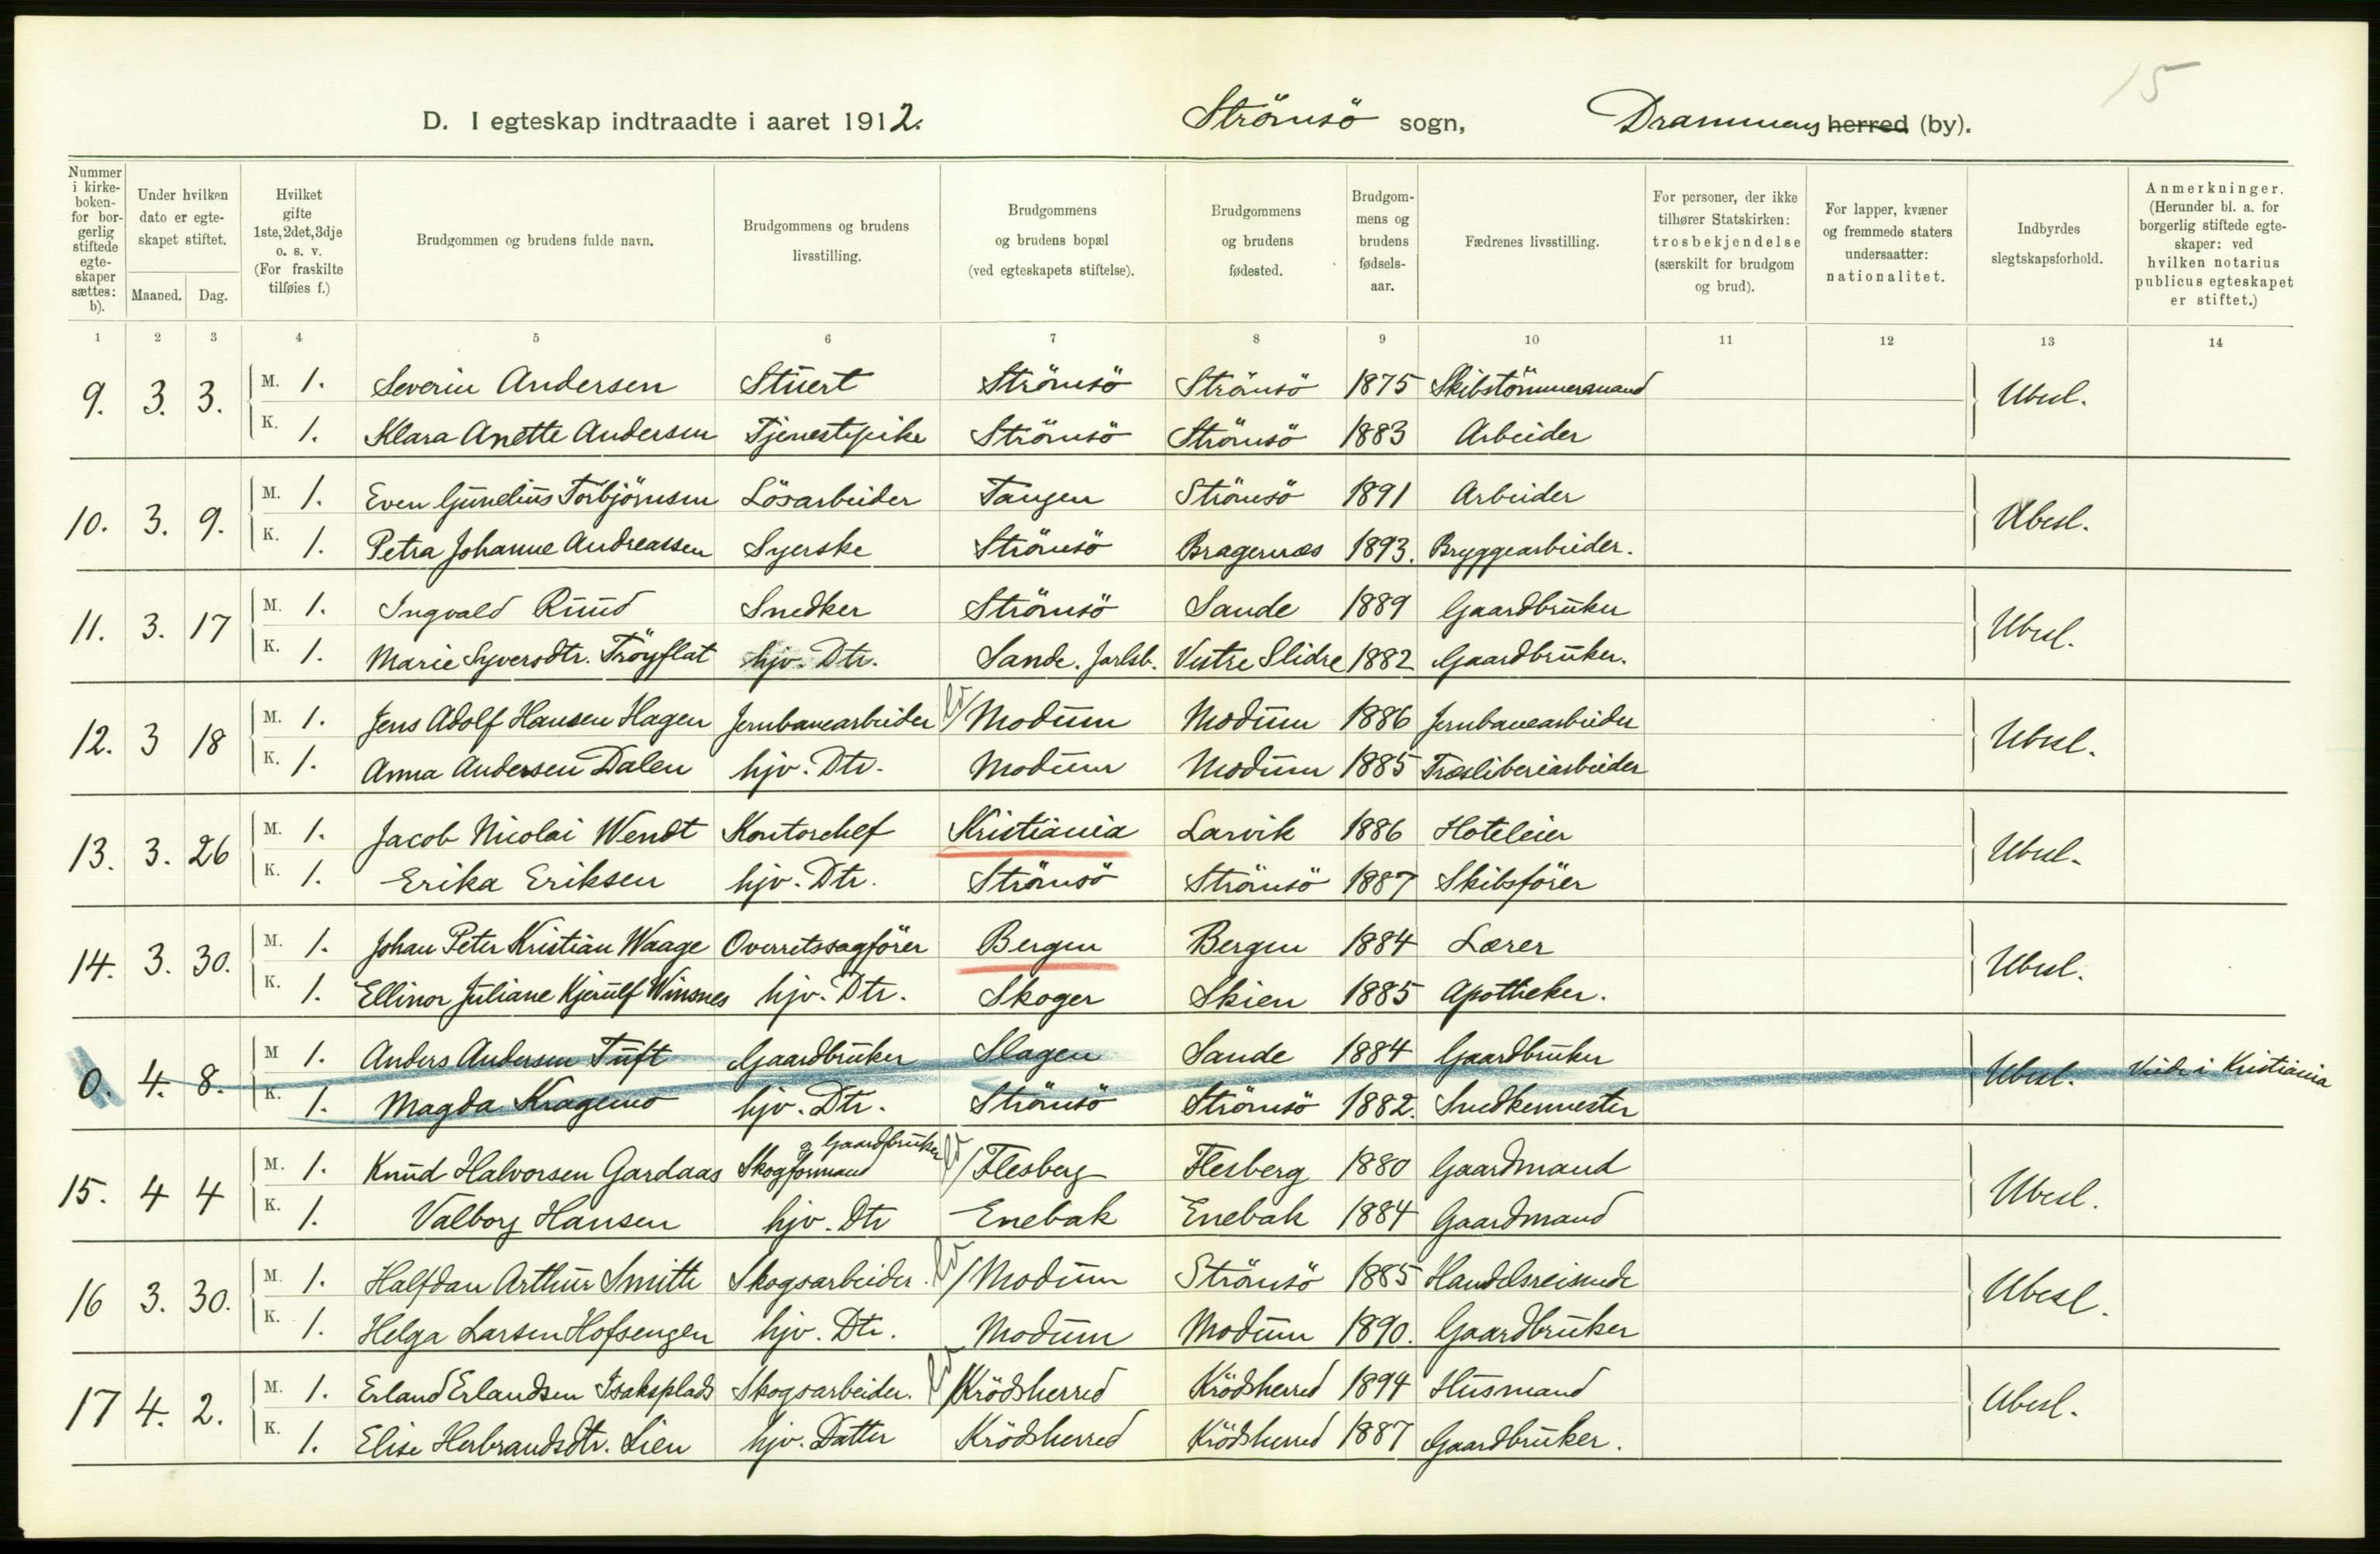 15
D. I egteskap indtraadte i aaret 1912. Strömsö sogn, Drammens herred (by).
Nummer i kirkeboken- for borgerlig stiftede egteskaper sættes: b).
Under hvilken dato er egteskapet stiftet.
Maaned. Dag.
Hvilket gifte 1ste, 2det, 3dje o. s. v. (For fraskilte tilføies f.)
Brudgommen og brudens fulde navn.
Brudgommens og brudens livsstilling.
Brudgommens og brudens bopæl (ved egteskapets stiftelse).
Brudgommens og brudens fødested.
Brudgommens og brudens fødselsaar.
Fædrenes livsstilling.
For personer, der ikke tilhører Statskirken: trosbekjendelse (særskilt for brudgom og brud).
For lapper, kvæner og fremmede staters undersaatter: nationalitet.
Indbyrdes slegtskapsforhold.
Anmerkninger. (Herunder bl. a. for borgerlig stiftede egteskaper: ved hvilken notarius publicus egteskapet er stiftet.)
1 2 3 4 5 6 7 8 9 10 11 12 13 14
9. 3. 3. M. 1. Severin Andersen Stuert Strömsö Strömsö 1875 Skibstömmermand Ubesl.
K. 1. Klara Anette Andersen Tjenestepike Strömsö Strömsö 1883 Arbeider
10. 3. 9. M. 1. Even Gunelius Torbjörnsen Lösarbeider Tangen Strömsö 1891 Arbeider Ubesl.
K. 1. Petra Johanne Andreassen Syerske Strömsö Bragernæs 1893. Bryggearbeider.
11. 3. 17 M. 1. Ingvald Ruud Snedker Strömsö Sande 1889 Gaardbruker Ubesl.
K. 1. Marie Syversdtr. Tröyflat hjv. Dtr. Sande. Jarlsb. Vestre Slidre 1882 Gaardbruker.
12. 3 18 M. 1. Jens Adolf Hansen Hagen Jernbanearbeider / Modum Modum 1886 Jernbanearbeider Ubesl.
K. 1. Anna Andersen Dalen hjv. Dtr. Modum Modum 1885 Træsliberiarbeider
13. 3. 26 M. 1. Jacob Nicolai Wendt Kontorchef Kristiania Larvik 1886 Hoteleier Ubesl.
K. 1. Erika Eriksen hjv. Dtr. Strömsö Strömsö 1887 Skibsförer
14. 3. 30. M. 1. Johan Peter Kristian Waage Overretssagförer Bergen Bergen 1884 Lærer Ubesl.
K. 1. Ellinor Juliane Kjerulf Winsnes hjv. Dtr. Skoger Skien 1885 Apotheker.
0. 4. 8. M 1. Anders Andersen Tuft Gaardbruker Slagen Sande 1884 Gaardbruker Ubesl. Viede i Kristiania
K. 1. Magda Kragemo hjv. Dtr. Strömsö Strömsö 1882. Snedkermester
15. 4 4 M. 1. Knud Halvorsen Gardaas Skogformand g Gaardbruker / Flesberg Flesberg 1880 Gaardmand Ubesl.
K. 1. Valborg Hansen hjv. Dtr Enebak Enebak 1884 Gaardmand
16 3. 30. M. 1. Halfdan Arthur Smith Skogsarbeider. / Modum Strömsö 1885 Handelsreisende Ubesl.
K. 1. Helga Larsen Hofsengen hjv. Dtr. Modum Modum 1890. Gaardbruker
17 4. 2. M. 1. Erland Erlandsen Isaksplads Skogsarbeider. / Krödsherred Krödsherred 1894 Husmand Ubesl.
K. 1. Elise Herbrandsdtr. Lien hjv. Datter Krödsherred Krödsherred 1887 Gaardbruker.